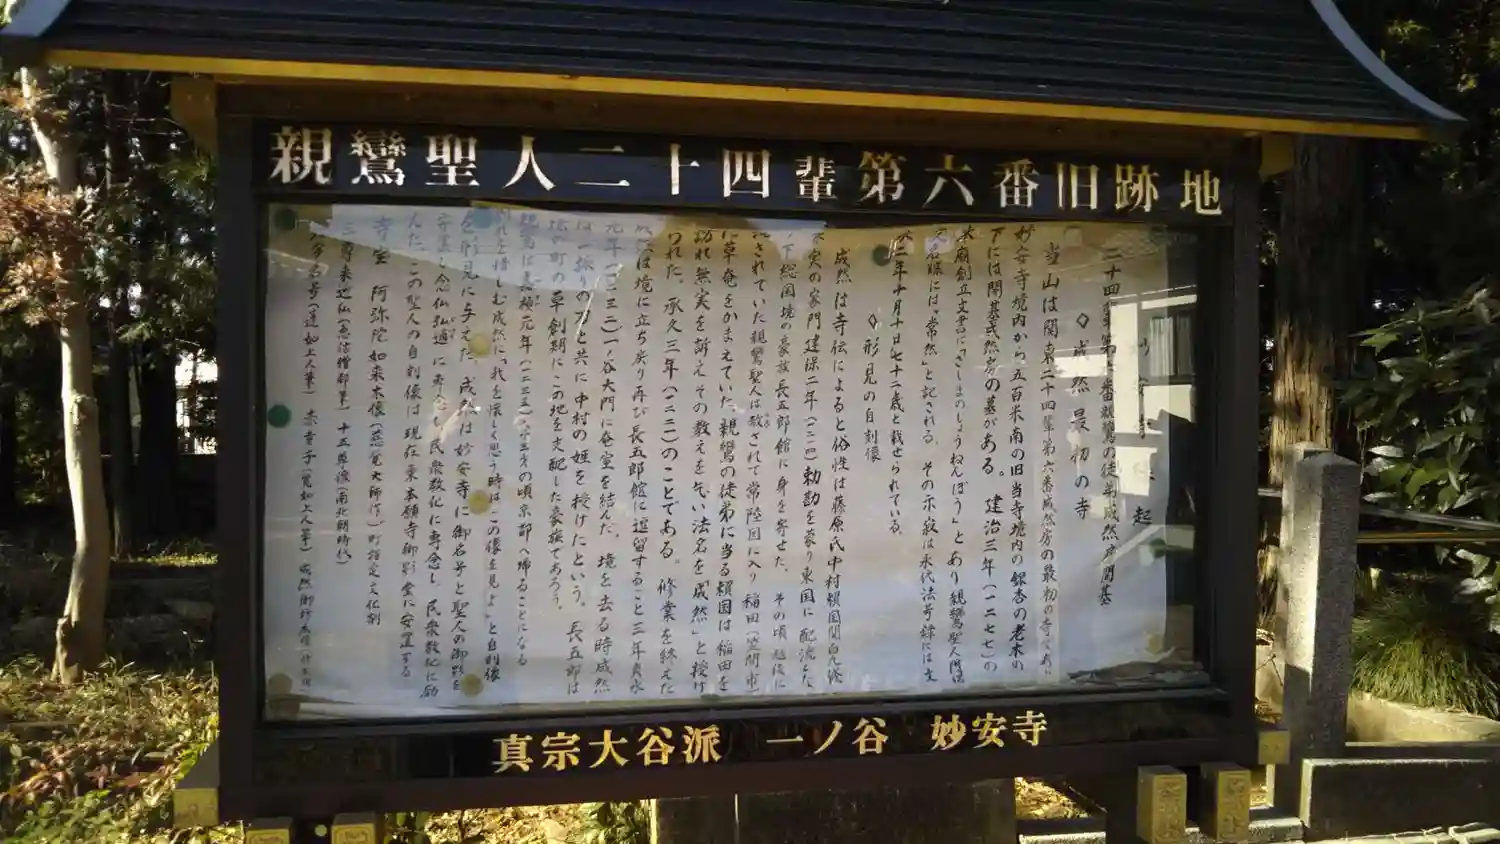 親鸞聖人二十四輩第六番旧跡地
妙安寺縁起
二十四輩第六番親鸞の徒弟成然房開基
◇成然最初の寺
当山は関東二十四輩第六番成然房の最初の寺であり
妙安寺境内から五百米南の旧当寺境内の銀杏の老木の
下には開基成然房の墓がある。建治三年(一二七七)の
本廟創立文書に「さしまのしょうねんぼう」とあり親鸞聖人門侶
には「常然」と記される。その示寂は永代法号録には文
二年十月十日七十二歳と載せられている。
◇形見の自刻像
成然は寺伝によると俗性は藤原氏中村頼国関白九條
兼実の家門建保二年(一二一四)勅勘を蒙り東国に配流とな
り下総国境の豪族長五郎館に身を寄せた。その頃越後に
流されていた親鸞聖人は赦されて常陸国に入り稲田(笠間市)
に草庵をかまえていた。親鸞の徒弟に当る頼国は稲田を
訪れ無実を訴えその教えを乞い法名を「成然」と授け
られた。承久三年(一二二一)のことである。修業を終えた
成然は境に立ち戻り再び長五郎館に逗留すること三年貞永
元年(一二三二)一ノ谷大門に庵室を結んだ。境を去る時成然
は一振りの刀と共に中村の姓を授けたという。長五郎は
境の町の草創期にこの地を支配した豪族であろう。
親鸞は嘉禎元年(一二三五)六十三才の頃京都へ帰ることになる
別れを惜しむ成然に「我を懐しく思う時はこの像を見よ」と自刻像
を形見に与えた。成然は妙安寺に御名号と聖人の御影を
安置し念仏弘通に専念し民衆教化に専念し民衆教化に励
んだ。この聖人の自刻像は現在東本願寺御影堂に安置する
寺宝 阿弥陀如来木像(慈覚大師作)町指定文化財
三尊来迎仏(恵信僧都筆) 十三佛像(南北朝時代)
六字名号(蓮如上人筆) 赤童子(覚如上人筆) 成然御影木像
真宗大谷派 一ノ谷 妙安寺